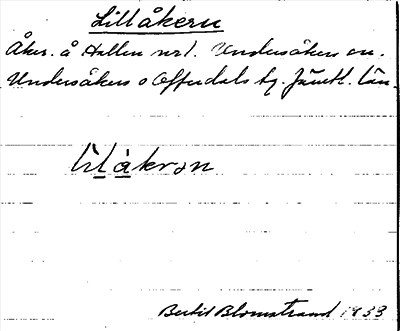 Lillåkern
Åker. å Hallen nr 1. Undersåkers sn.
Undersåkers o Offerdals tg. Jämtl. län.
lìlàkrɘn
Bertil Blomstrand 1933